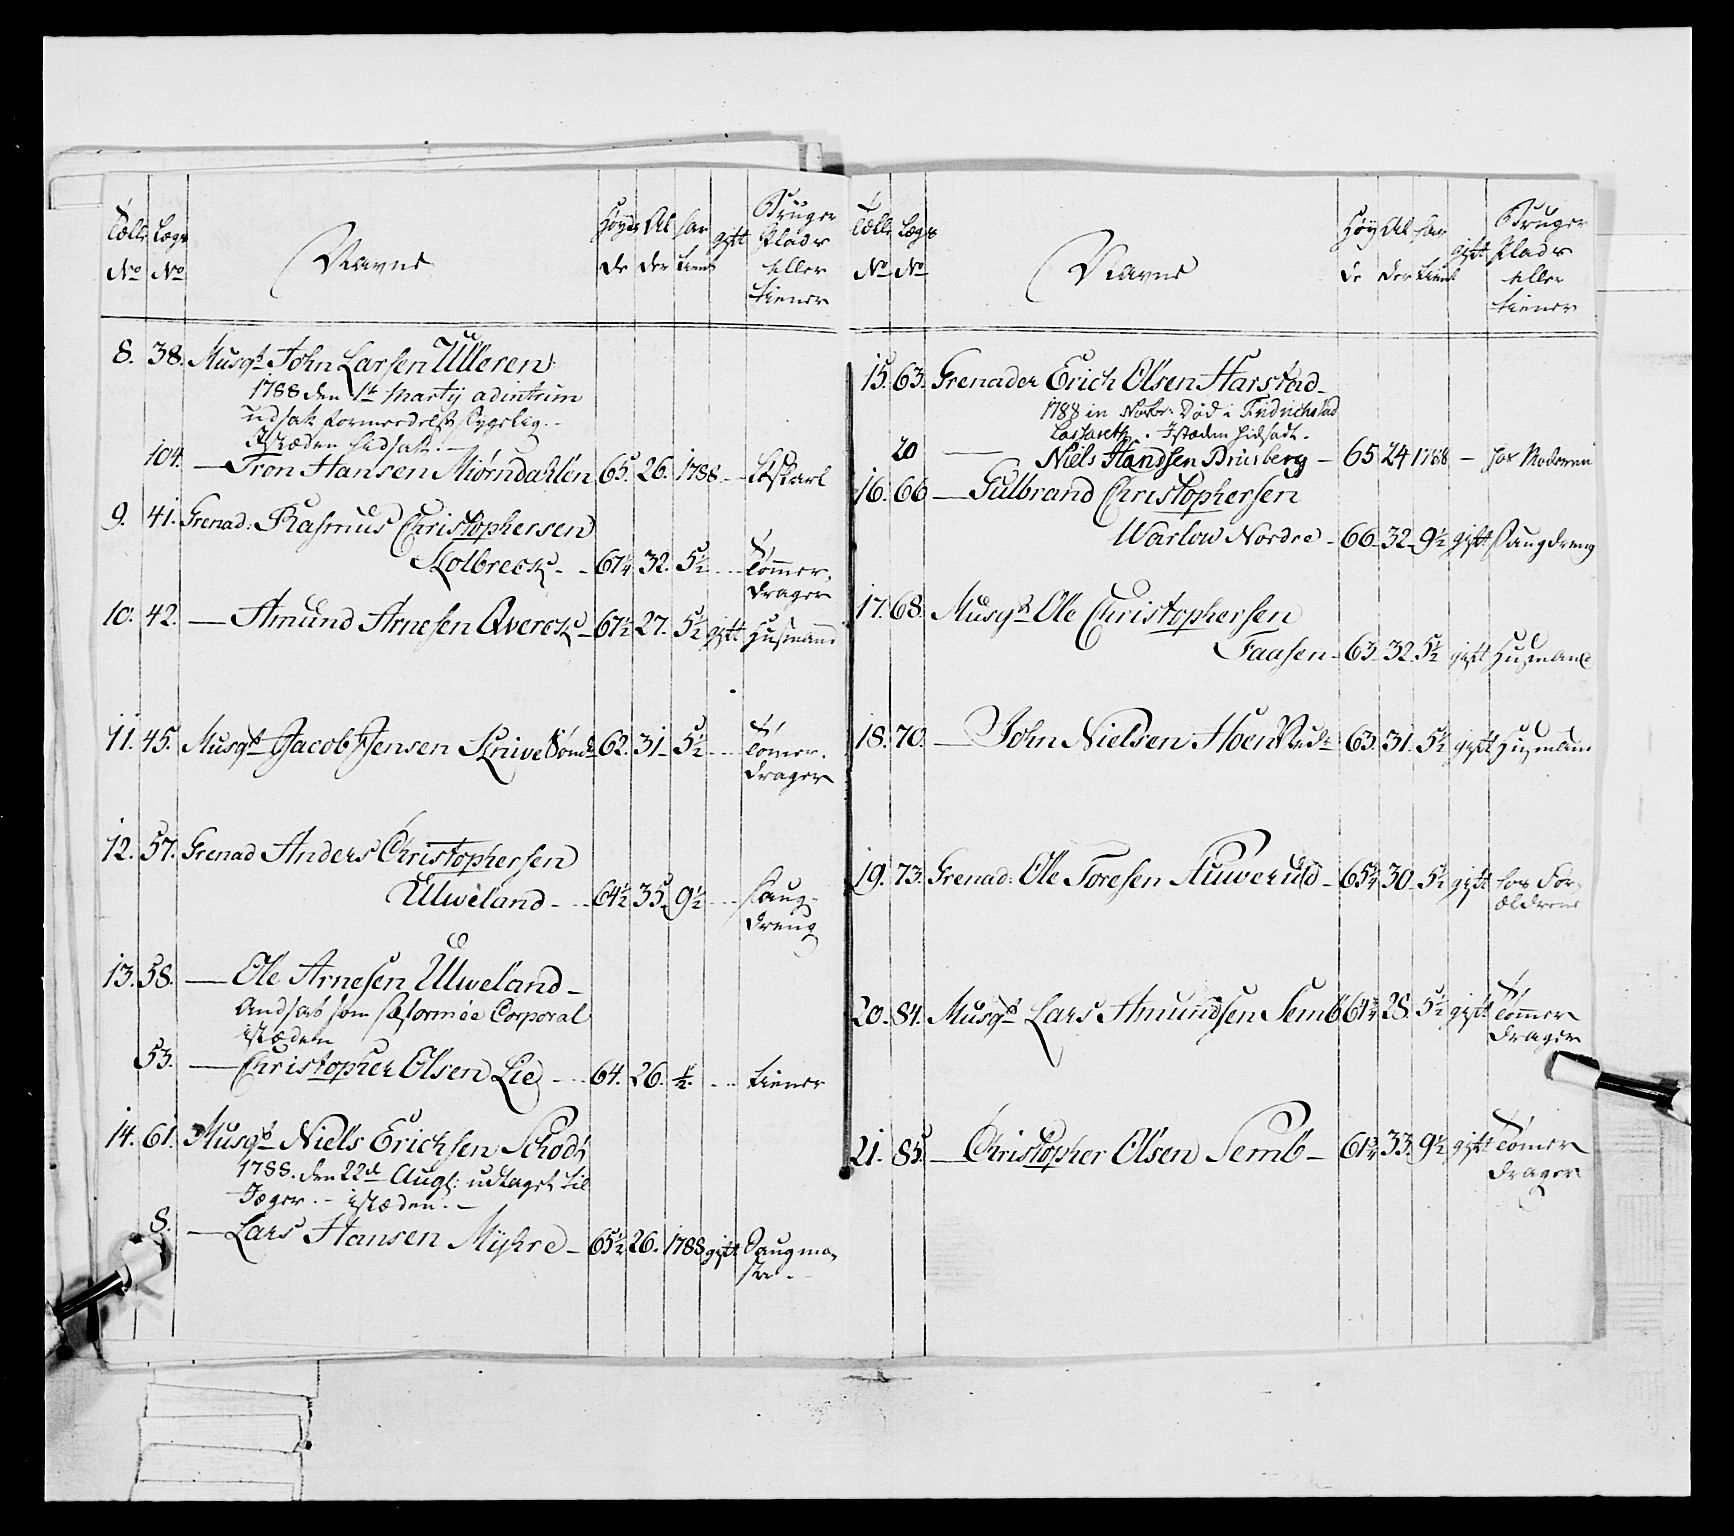 Tolle Lægs Navne Høyde Alder har tient gift Bruger Plads eller tiener
No No
8. 38. Musqt John Larsen Ulleren
1788 den 1te Marty ad intrim
udsat formedelst Sygelig. -
Istæden indsat. -
104. — Tron Hansen Miørndahlen 65. 26. 1788 - - Lifskarl
9. 41. Grenad: Rasmus Christophersen
Kolbreck - - 67¼ 32. 5½ - - Tømmer-
drager
10. 42. — Amund Arnesen Qvereck - 67½ 27. 5½ gift Husmand
11. 45. Musqt Jacob Jensen Knive Sønd: 62. 31 - 5½ - - Tømer-
drager
12. 57. Grenad Anders Christophersen
Ulweland - - 64½ 35. 9½ - - Saug-
dreng
13. 58. — Ole Arnesen Ulweland -
Andsat som Reformée Corporal
istæden
53. — Christopher Olsen Lie - - 64. 26. ½. - - tiener
14. 61. Musqt Niels Erichsen Schodt
1788. den 22de Augt: udtaget til
Jæger. - istæden. -
8. — Lars Hansen Myhre - 65½ 26. 1788 gift Saugme-
ster. -
Tolle Lægs Navne Høyde Alder har tient gift Bruger Plads eller tiener
No No
15. 63. Grenader Erich Olsen Harstad -
1788 in Novbr: Død i Fridrichstad
Lassareth. Istæden hidsadt.
20 — Niels Hanssen Bruisberg - 65 24 1788 - hos Moderen
16. 66 — Gulbrand Christophersen
Warlow Nordre - 66 - 32 - 9½ gift Saugdreng
17. 68. Musqt Ole Christophersen
Faasen - 63 - 32 5½ gift Husmand
18. 70. — John Nielsen Hoen Nedr: 63. 31. 5½ gift Husmand
19. 73. Grenad: Ole Toresen Stuwerud - 65¾ 30 - 5½ gift hos For-
ældrene
20. 84. Musqt Lars Amundsen Semb 61¾ 28. 5½ gift Tømmer
drager
21. 85. — Christopher Olsen Semb - 61¾ 33. 9½ gift Tømer
drager